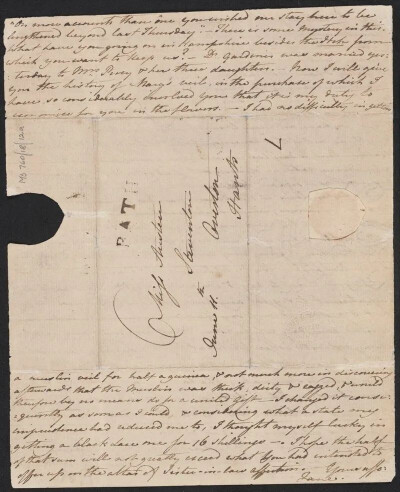 "On more accounts than one you wished our stay here to be
lengthened beyond last Thursday." — There is some mystery in this.
What have you going on in Hampshire besides the Itch from
which you want to keep us? — Dr Gardiner was married yes-
terday to Mrs Percy & her three daughters. — Now I will give
you the history of Mary's veil, in the purchase of which I
have so considerably involved you that it is my duty to
economise for you in the flowers. — I had no difficulty in getting
MS 760/18/12A
BATH
Miss Austen
Steventon
Overton
Hants
June 11th
7
a muslin veil for half a guinea, & not much more in discovering
afterwards that the Muslin was thick, dirty & ragged, & would
therefore by no means do for a united gift. — I changed it conse-
quently as soon as I could, & considering what a state my
imprudence had reduced me to, I thought myself lucky in
getting a black lace one for 16 shillings. — I hope the half
of that sum will not greatly exceed what You had intended to
offer up on the Altar of Sister-in-law affection. Yours affe:
Jane.